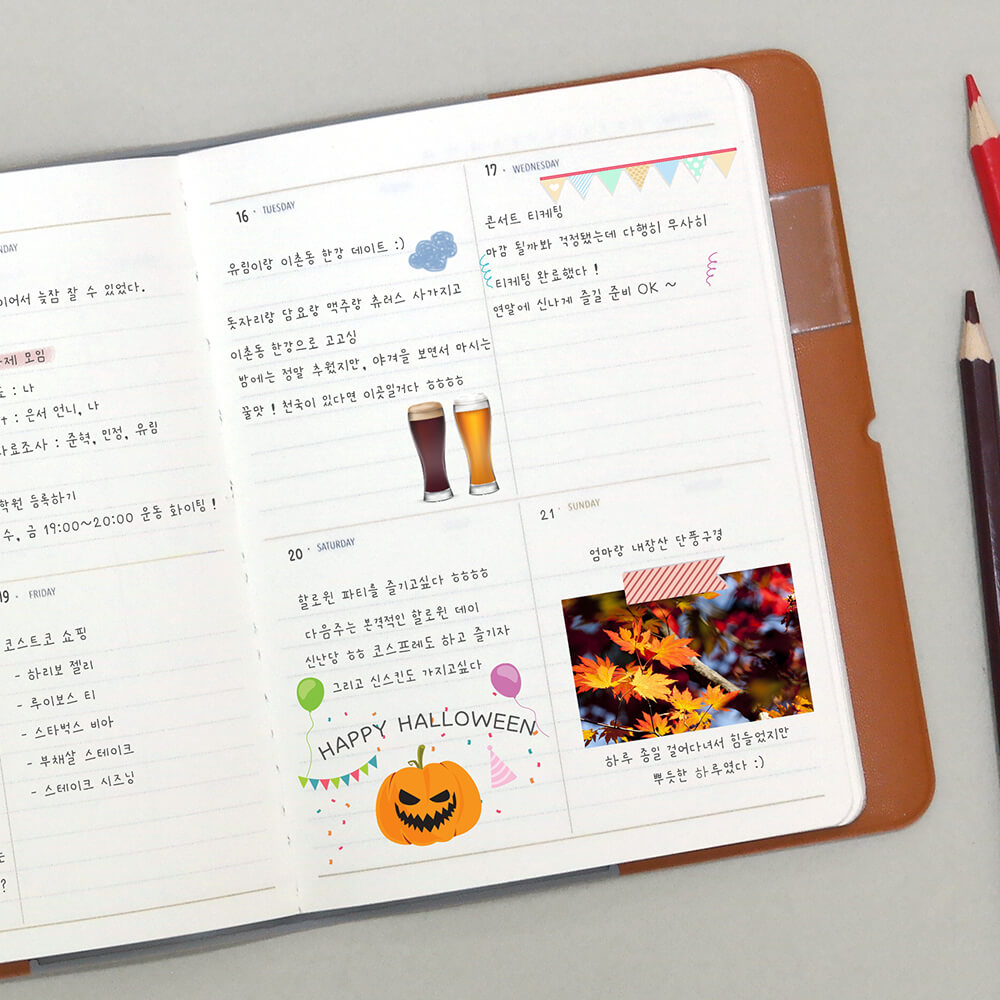 NDAY
이어서 늦잠 잘 수 있었다.
제 모임
: 나
: 은서 언니, 나
자료조사 : 준혁, 민정, 유림
학원 등록하기
수, 금 19:00~20:00 운동 화이팅!
19 · FRIDAY
코스트코 쇼핑
- 하리보 젤리
- 루이보스 티
- 스타벅스 비아
- 부채살 스테이크
- 스테이크 시즈닝
는
?
16 · TUESDAY
유림이랑 이촌동 한강 데이트 :)
돗자리랑 담요랑 맥주랑 츄러스 사가지고
이촌동 한강으로 고고싱
밤에는 정말 추웠지만, 야경을 보면서 마시는
꿀맛! 천국이 있다면 이곳일거다 ㅎㅎㅎㅎ
17 · WEDNESDAY
콘서트 티케팅
마감 될까봐 걱정됐는데 다행히 무사히
티케팅 완료했다!
연말에 신나게 즐길 준비 OK ~
20 · SATURDAY
할로윈 파티를 즐기고싶다 ㅎㅎㅎㅎ
다음주는 본격적인 할로윈 데이
신난당 ㅎㅎ 코스프레도 하고 즐기자
그리고 신스킨도 가지고싶다
HAPPY HALLOWEEN
21 · SUNDAY
엄마랑 내장산 단풍구경
하루 종일 걸어다녀서 힘들었지만
뿌듯한 하루였다 :)